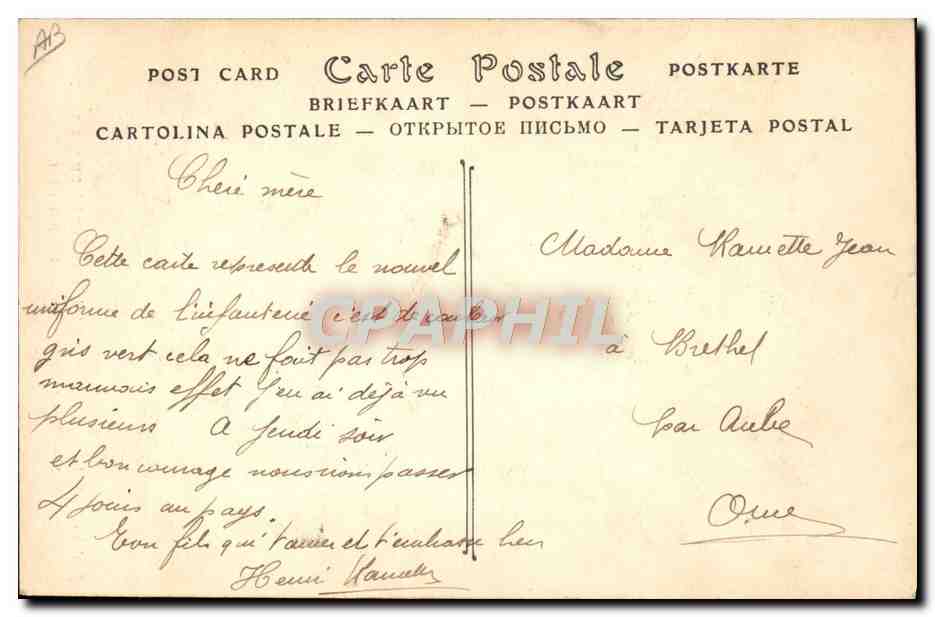 AB
POST CARD Carte Postale POSTKARTE
BRIEFKAART — POSTKAART
CARTOLINA POSTALE — ОТКРЫТОЕ ПИСЬМО — TARJETA POSTAL
Cheré mère
Cette carte represente le nouvel
uniforme de l'infanterie c'est de couleur
gris vert cela ne fait pas trop
mauvais effet J'en ai déjà vu
plusieurs A Jeudi soir
et bon courage nous irons passer
4 jours au pays.
Ton fils qui t'aime et t'embrasse bien
Henri Hamette
Madame Hamette Jean
à Brethel
par Aube
Orne
CPAPHIL